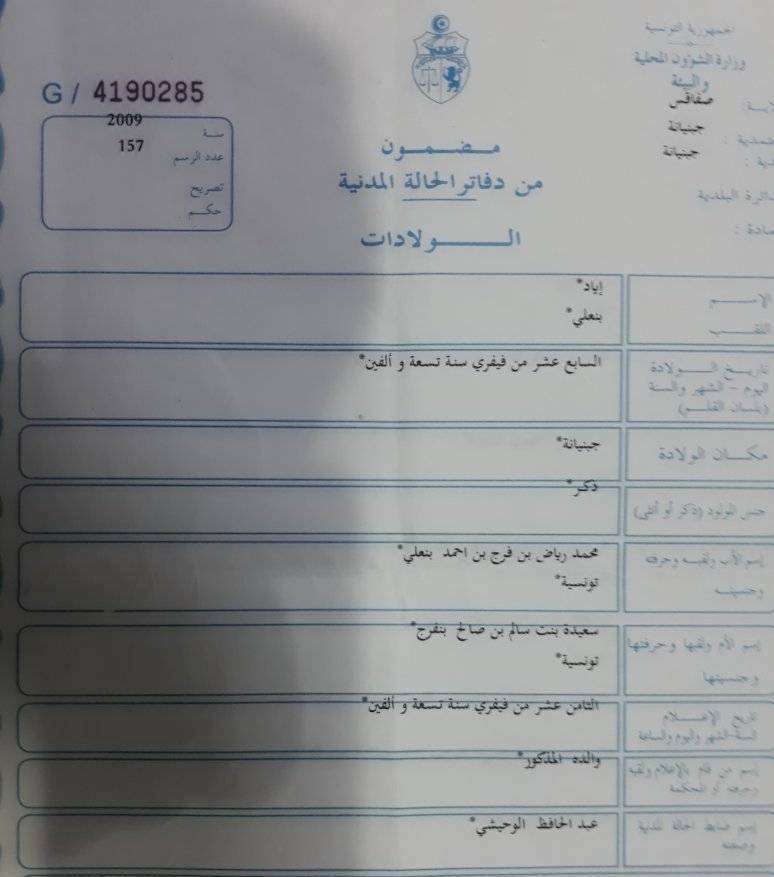 الجمهورية التونسية
وزارة الشؤون المحلية
والبيئة
صفاقس
جبنيانة
جبنيانة
الدائرة البلدية
G / 4190285
سنة 2009
عدد الرسم 157
تصريح
حكم
مضمون
من دفاتر الحالة المدنية
الولادات
الإسم إياد*
اللقب بنعلي*
تاريخ الولادة السابع عشر من فيفري سنة تسعة و ألفين*
اليوم - الشهر والسنة
(بلسان القلم)
مكان الولادة جبنيانة*
جنس المولود (ذكر أو أنثى) ذكر*
إسم الأب ولقبه وحرفته محمد رياض بن فرج بن احمد بنعلي*
وجنسيته تونسية*
إسم الأم ولقبها وحرفتها سعيدة بنت سالم بن صالح بنفرج*
وجنسيتها تونسية*
تاريخ الإعلام الثامن عشر من فيفري سنة تسعة و ألفين*
السنة-الشهر واليوم والساعة
إسم من قام بالإعلام ولقبه والده المذكور*
وحرفته أو المحكمة
إسم ضابط الحالة المدنية عبد الحافظ الوحيشي*
وصفته